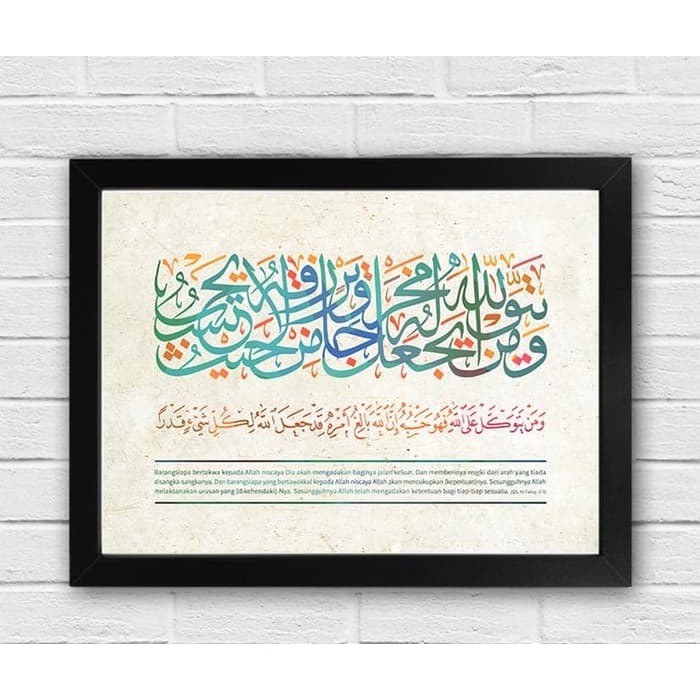 ومن يتق الله يجعل له مخرجا ويرزقه من حيث لا يحتسب
وَمَنْ يَتَوَكَّلْ عَلَى اللَّهِ فَهُوَ حَسْبُهُ إِنَّ اللَّهَ بَالِغُ أَمْرِهِ قَدْ جَعَلَ اللَّهُ لِكُلِّ شَيْءٍ قَدْرًا
Barangsiapa bertakwa kepada Allah niscaya Dia akan mengadakan baginya jalan keluar. Dan memberinya rezeki dari arah yang tiada
disangka-sangkanya. Dan barangsiapa yang bertawakkal kepada Allah niscaya Allah akan mencukupkan (keperluan)nya. Sesungguhnya Allah
melaksanakan urusan yang (dikehendaki)-Nya. Sesungguhnya Allah telah mengadakan ketentuan bagi tiap-tiap sesuatu.